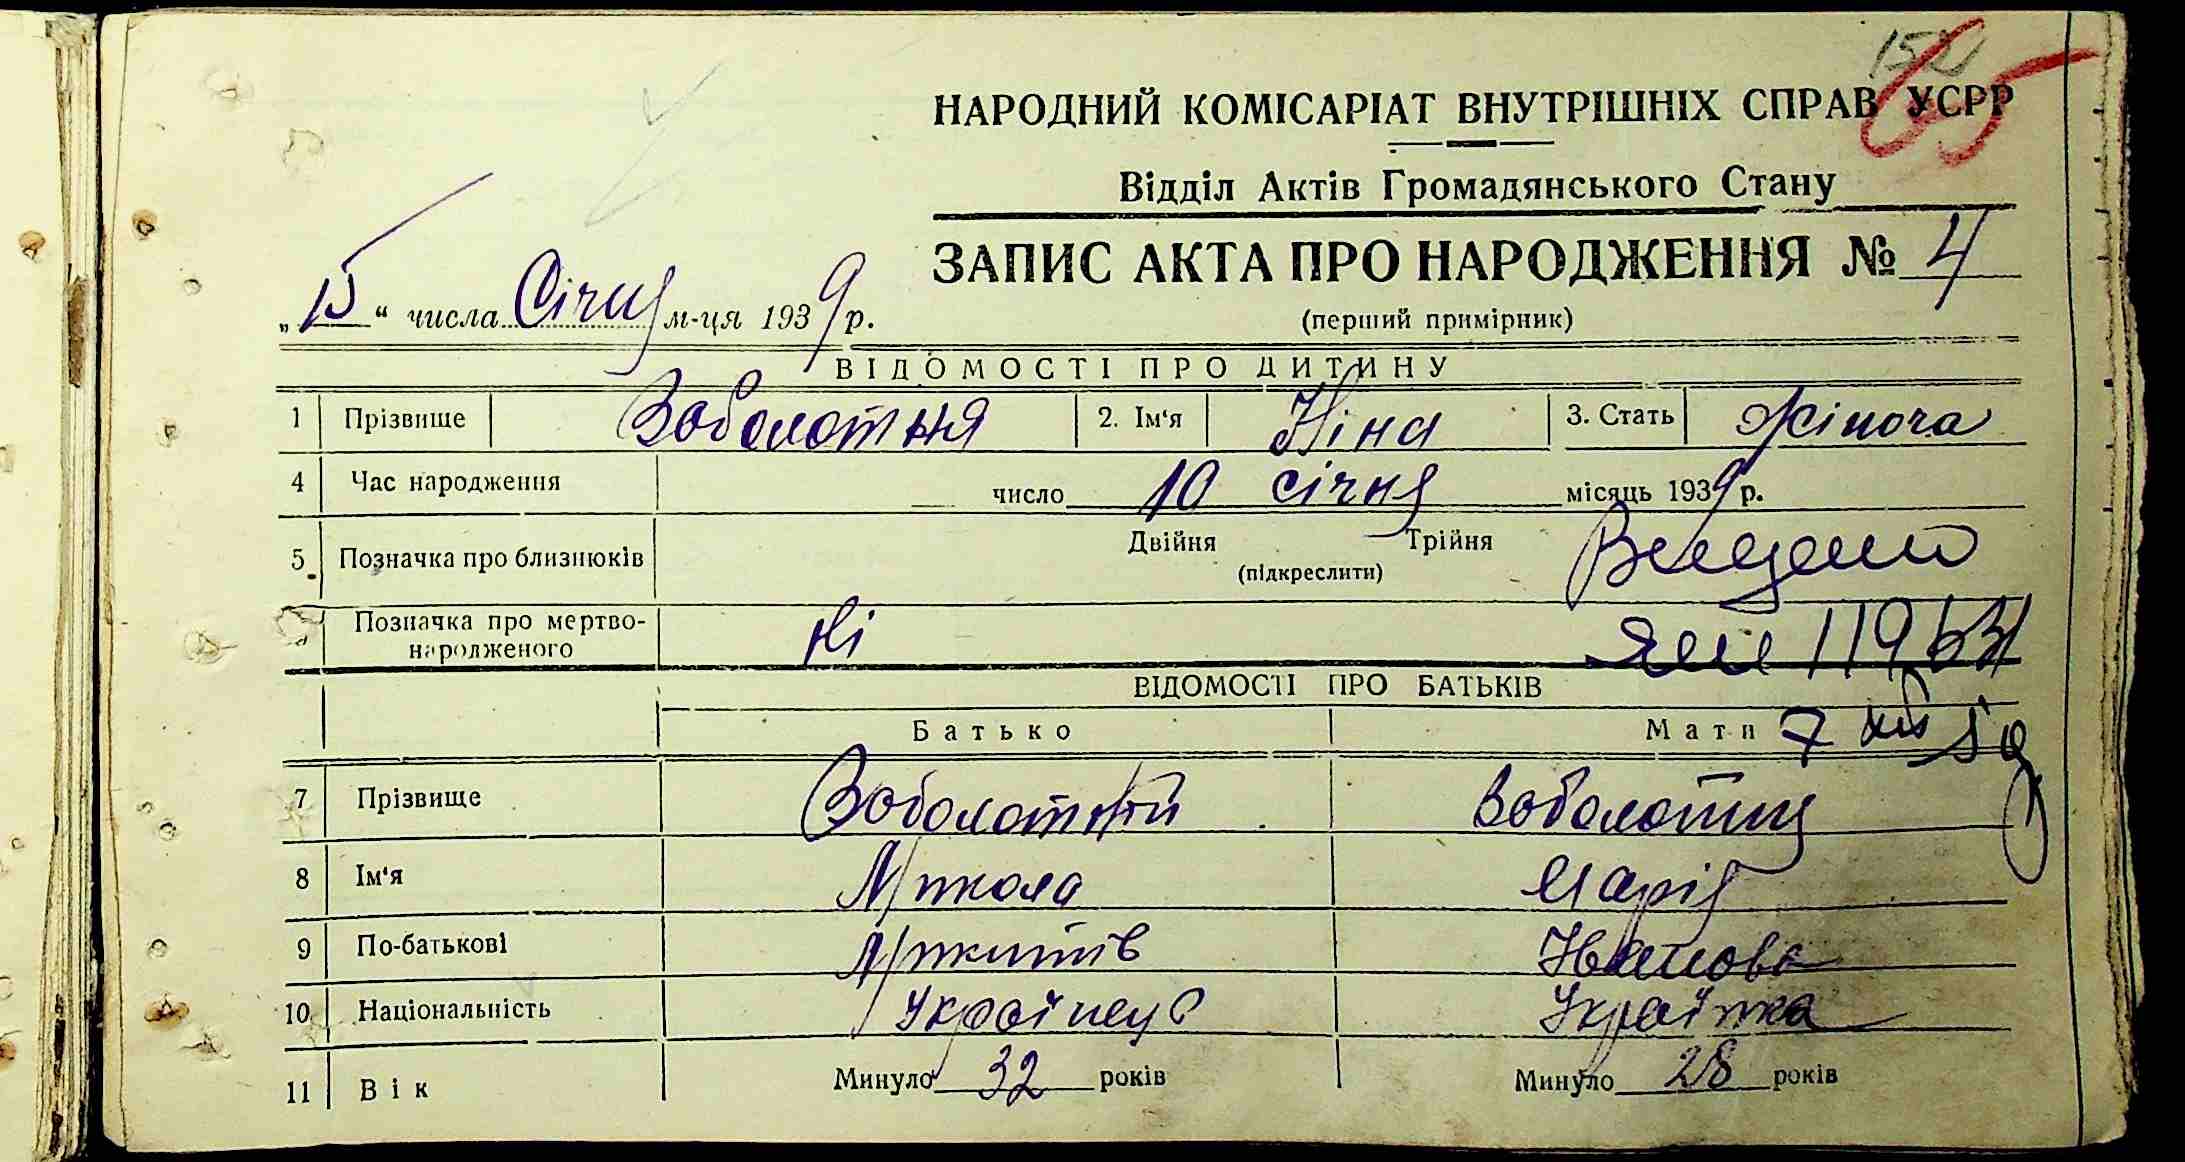 152
65
НАРОДНИЙ КОМІСАРІАТ ВНУТРІШНІХ СПРАВ УСРР
Відділ Актів Громадянського Стану
ЗАПИС АКТА ПРО НАРОДЖЕННЯ № 4
„15“ числа Січня м-ця 1939 р.
(перший примірник)
ВІДОМОСТІ ПРО ДИТИНУ
1 Прізвище Заболотня 2. Ім'я Ніна 3. Стать жіноча
4 Час народження число 10 січня місяць 1939 р.
5 Позначка про близнюків Двійня Трійня
(підкреслити)
Позначка про мертво-
народженого Ні
ВІДОМОСТІ ПРО БАТЬКІВ
Батько Мати
7 Прізвище Заболотній Заболотня
8 Ім'я Микола Марія
9 По-батькові Микитів Іванова
10 Національність Українець Українка
11 Вік Минуло 32 років Минуло 28 років